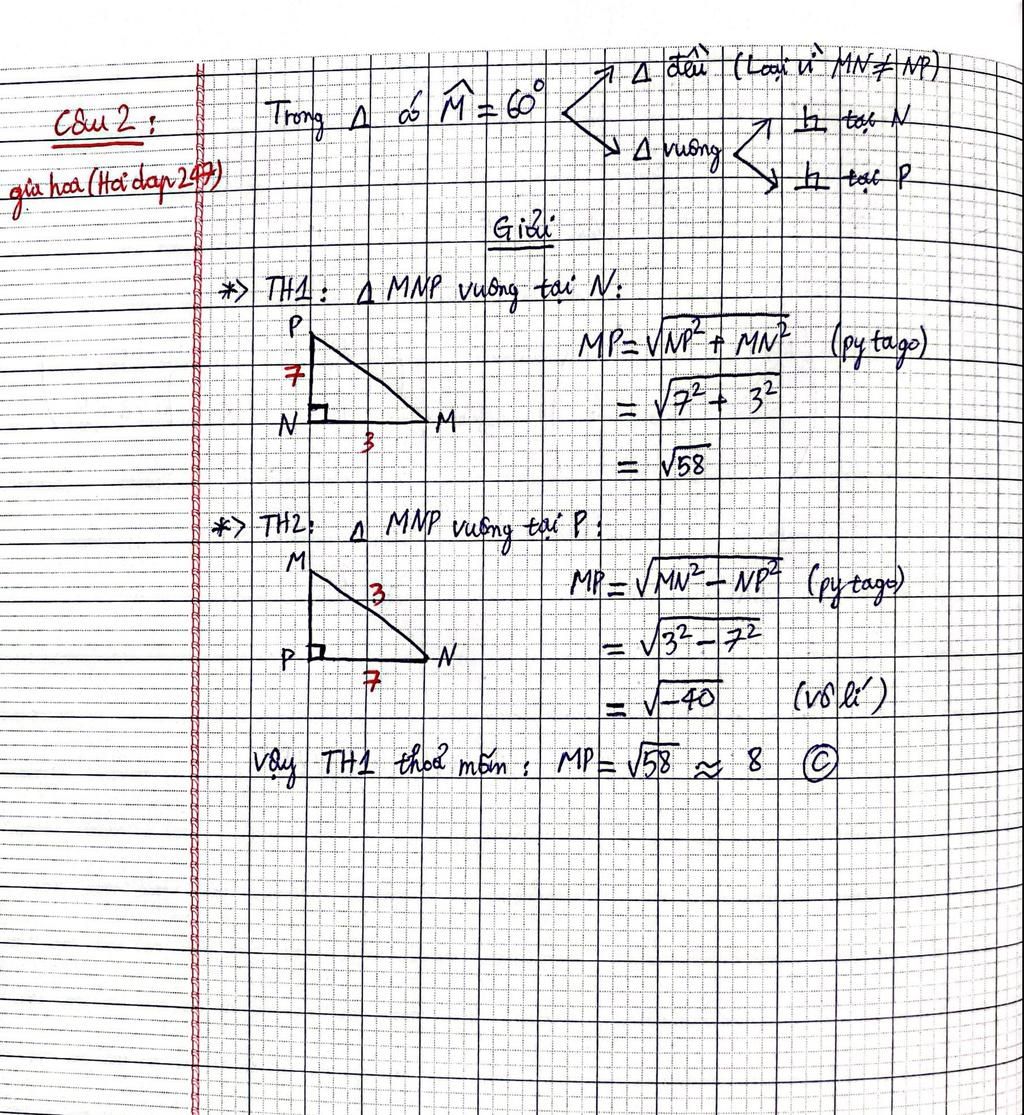 Câu 2:
gia hoa (Hoidap247)
Trong Δ có M̂ = 60°
Δ đều (Loại vì MN ≠ NP)
Δ vuông
tại N
tại P
Giải
*> TH1: Δ MNP vuông tại N:
P
7
N
M
3
MP = √(NP² + MN²) (pytago)
= √(7² + 3²)
= √58
*> TH2: Δ MNP vuông tại P:
M
3
P
N
7
MP = √(MN² - NP²) (pytago)
= √(3² - 7²)
= √-40 (vô lí)
Vậy TH1 thoả mãn: MP = √58 ≈ 8 Ⓒ